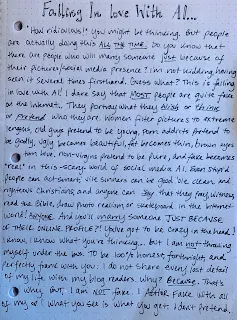 Falling In Love With AI...
How ridiculous!! You might be thinking. But people
are actually doing this ALL THE TIME. Do you know that
there are people who will marry someone just because of
their picture/social media presence? I'm not kidding having
seen it several times firsthand. Guess what? This is falling
in love with AI. I dare say that MOST people are quite fake
on the internet. They portray what they WISH or THINK
or PRETEND who they are. Women filter pictures to extreme
lengths, old guys pretend to be young, porn addicts pretend to
be godly, ugly becomes beautiful, fat becomes thin, brown eyes
turn blue, non-virgins pretend to be pure, and fake becomes
"real" in this scary world of social media AI. Even stupid
people can act smart. Vile sinners can be good 'ole, clean, and
righteous Christians, and anyone can say that they pray, witness,
read the Bible, draw photo realism, or skateboard, in the Internet
World! ANYONE. And you'll marry someone JUST BECAUSE
OF THEIR ONLINE PROFILE?! You've got to be crazy in the head!
I know, I know what you're thinking... but I am not throwing
myself under the bus. TO be 100% honest, forthright, and
perfectly frank with you: I do not share every last detail
of my life with my blog readers. Why? Because. That's
why. But, I am NOT fake. I ABHOR fake with all
of my
What you see is what you get. I don't pretend.